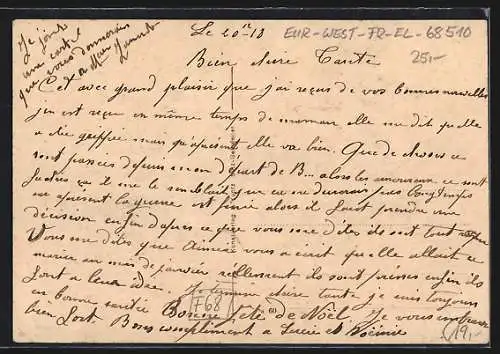 Je joins
une carte
que vous donnerez
a Mme Jeannet
Le 20 - 18
EUR-WEST-FR-EL-68510
25,-
Bien chère Tante
C'est avec grand plaisir que j'ai reçus de vos bonnes nouvelles
j'en est reçue en même temps de maman elle me dit quelle
a été grippée mais qu'à présent elle va bien. Que de choses ce
sont passées depuis mon départ de B... alors les amoureux ce sont
ça il me le semblait que ça ne durerait pas longtemps
a présent la guerre est finie alors il faut prendre une
décision enfin d'apres ce que vous me dites ils sont tout
Vous me dites que Aimée vous a écrit que elle allait ce
marier au mois de janvier réellement ils sont pressés enfin ils
sont a leur idée. Je termine chère tante je suis toujours
en bonne santée Bonne fête de Noël. Je vous embrasse
bien fort. Bons compliments a et
F68
19,-